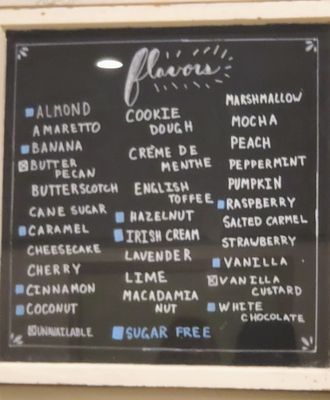 flavors
ALMOND
AMARETTO
BANANA
BUTTER
PECAN
BUTTERSCOTCH
CANE SUGAR
CARAMEL
CHEESECAKE
CHERRY
CINNAMON
COCONUT
UNAVAILABLE
COOKIE
DOUGH
CRÈME DE
MENTHE
ENGLISH
TOFFEE
HAZELNUT
IRISH CREAM
LAVENDER
LIME
MACADAMIA
NUT
SUGAR FREE
MARSHMALLOW
MOCHA
PEACH
PEPPERMINT
PUMPKIN
RASPBERRY
SALTED CARMEL
STRAWBERRY
VANILLA
VANILLA
CUSTARD
WHITE
CHOCOLATE